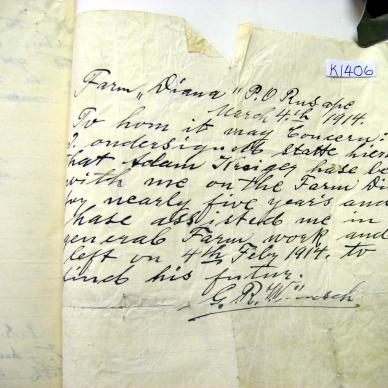 K1406
Farm „Diana" P.O Rusape
March 4th 1914.
To hom it may Concern:
I. ondersignet statte hier
that Adam Kreiger hase be
with me on the Farm Di
for nearly five years and
hase assisted me in
general Farm, work and
left on 4th Feby 1914, to
find his futur.
G. R.